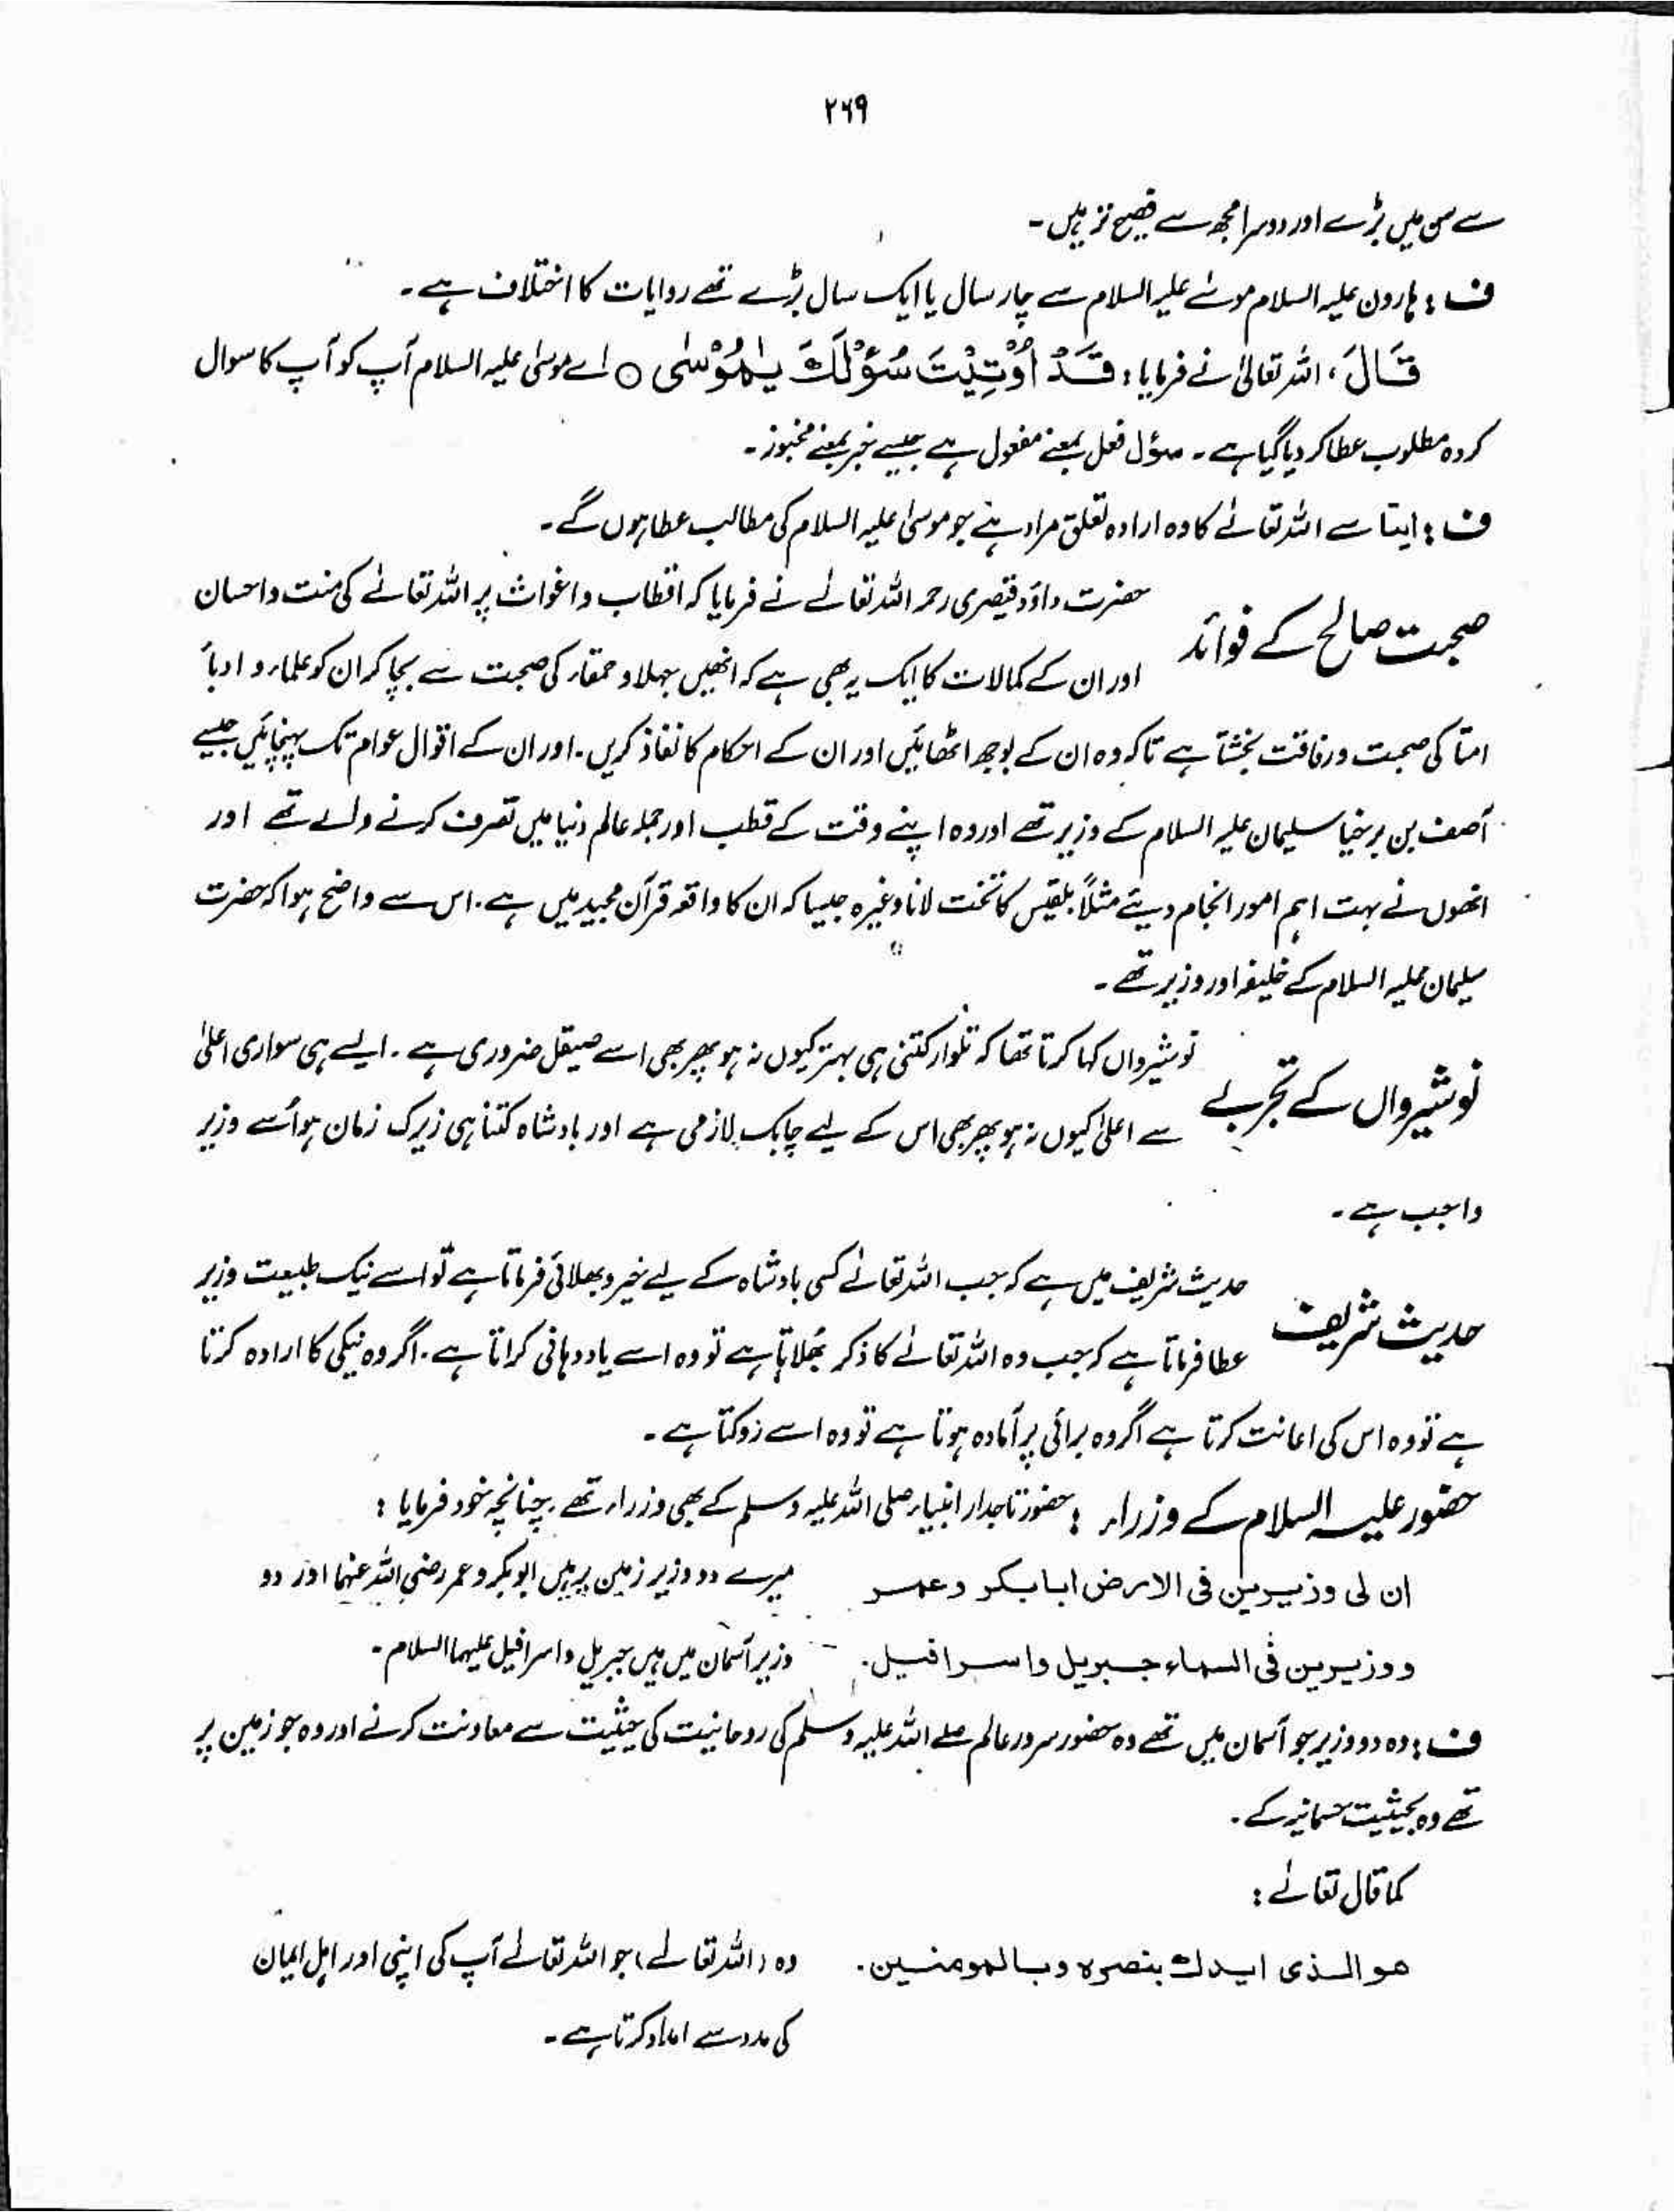 ۲۶۹
سے سن میں بڑے اور دوسرا مجھ سے فصیح تر ہیں۔
ف : ہارون علیہ السلام موسےٰ علیہ السلام سے چار سال یا ایک سال بڑے تھے روایات کا اختلاف ہے۔
قَالَ ، اللہ تعالیٰ نے فرمایا : قَدْ اُوْتِيْتَ سُؤْلَكَ يٰمُوْسٰى ○ اے موسیٰ علیہ السلام آپ کو آپ کا سوال
کردہ مطلوب عطا کر دیا گیا ہے۔ سؤل فعل بمعنے مفعول ہے جیسے خبز بمعنے مخبوز۔
ف : ایتا سے اللہ تعالےٰ کا وہ ارادہ تعلق مراد ہے جو موسیٰ علیہ السلام کی مطالب عطا ہوں گے۔
صحبت صالح کے فوائد
حضرت داؤد قیصری رحمہ اللہ تعالےٰ نے فرمایا کہ اقطاب و اغواث پر اللہ تعالےٰ کی منت و احسان
اور ان کے کمالات کا ایک یہ بھی ہے کہ انھیں جہلا و حمقاء کی صحبت سے بچا کر ان کو علماء و ادباً
امتأ کی صحبت و رفاقت بخشتا ہے تاکہ وہ ان کے بوجھ اٹھائیں اور ان کے احکام کا نفاذ کریں۔ اور ان کے اقوال عوام تک پہنچائیں جیسے
آصف بن برخیا سلیمان علیہ السلام کے وزیر تھے اور وہ اپنے وقت کے قطب اور جملہ عالم دنیا میں تصرف کرنے والے تھے اور
انھوں نے بہت اہم امور انجام دیئے مثلاً بلقیس کا تخت لانا وغیرہ جیسا کہ ان کا واقعہ قرآن مجید میں ہے۔ اس سے واضح ہوا کہ حضرت
سلیمان علیہ السلام کے خلیفہ اور وزیر تھے۔
نوشیرواں کے تجربے
نوشیرواں کہا کرتا تھا کہ تلوار کتنی ہی بہتر کیوں نہ ہو پھر بھی اسے صیقل ضروری ہے۔ ایسے ہی سواری اعلیٰ
سے اعلیٰ کیوں نہ ہو پھر بھی اس کے لیے چابک لازمی ہے اور بادشاہ کتنا ہی زیرک زمان ہو اُسے وزیر
واجب ہے۔
حدیث شریف
حدیث شریف میں ہے کہ جب اللہ تعالےٰ کسی بادشاہ کے لیے خیر و بھلائی فرماتا ہے تو اسے نیک طبیعت وزیر
عطا فرماتا ہے کہ جب وہ اللہ تعالےٰ کا ذکر بھُلاتا ہے تو وہ اسے یاد دہانی کراتا ہے۔ اگر وہ نیکی کا ارادہ کرتا
ہے تو وہ اس کی اعانت کرتا ہے اگر وہ برائی پر آمادہ ہوتا ہے تو وہ اسے روکتا ہے۔
حضور علیہ السلام کے وزراء : حضور تاجدار انبیاء صلی اللہ علیہ وسلم کے بھی وزراء تھے۔ چنانچہ خود فرمایا :
ان لی وزیرین فی الارض ابا بکر وعمر
ووزیرین فی السماء جبریل واسرافیل.
میرے دو وزیر زمین پر ہیں ابو بکر و عمر رضی اللہ عنہما اور دو
وزیر آسمان میں ہیں جبریل و اسرافیل علیہما السلام۔
ف : وہ دو وزیر جو آسمان میں تھے وہ حضور سرور عالم صلے اللہ علیہ وسلم کی روحانیت کی حیثیت سے معاونت کرنے اور وہ جو زمین پر
تھے وہ بحیثیت جسمانیہ کے۔
کما قال تعالےٰ :
هو الذی ایدك بنصره وبالمومنین.
وہ (اللہ تعالےٰ) جو اللہ تعالےٰ آپ کی اپنی اور اہل ایمان
کی مدد سے امداد کرتا ہے۔